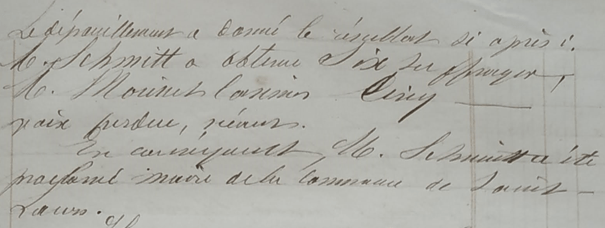 Le dépouillement a donné le résultat si après :
M. Schmitt a obtenu Six suffrages,
M. Moinet Casimir Cinq
voix perdue, néant.
En conséquent M. Schmitt a été
proclamé maire de la Commune de Saint-
Laurs.